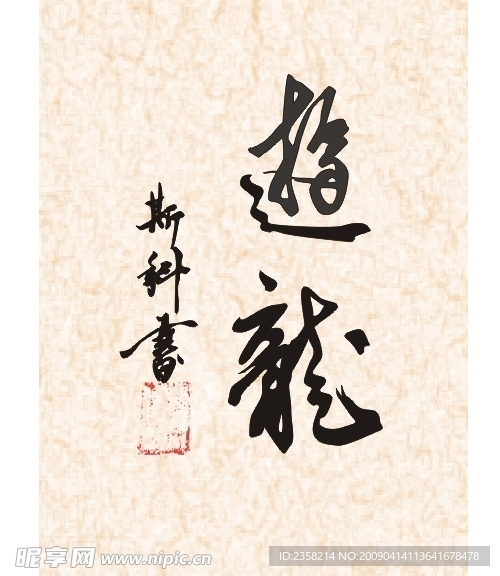 遊龍
斯科書
昵享网 www.nipic.cn
ID:2358214 NO:20090414113641678478